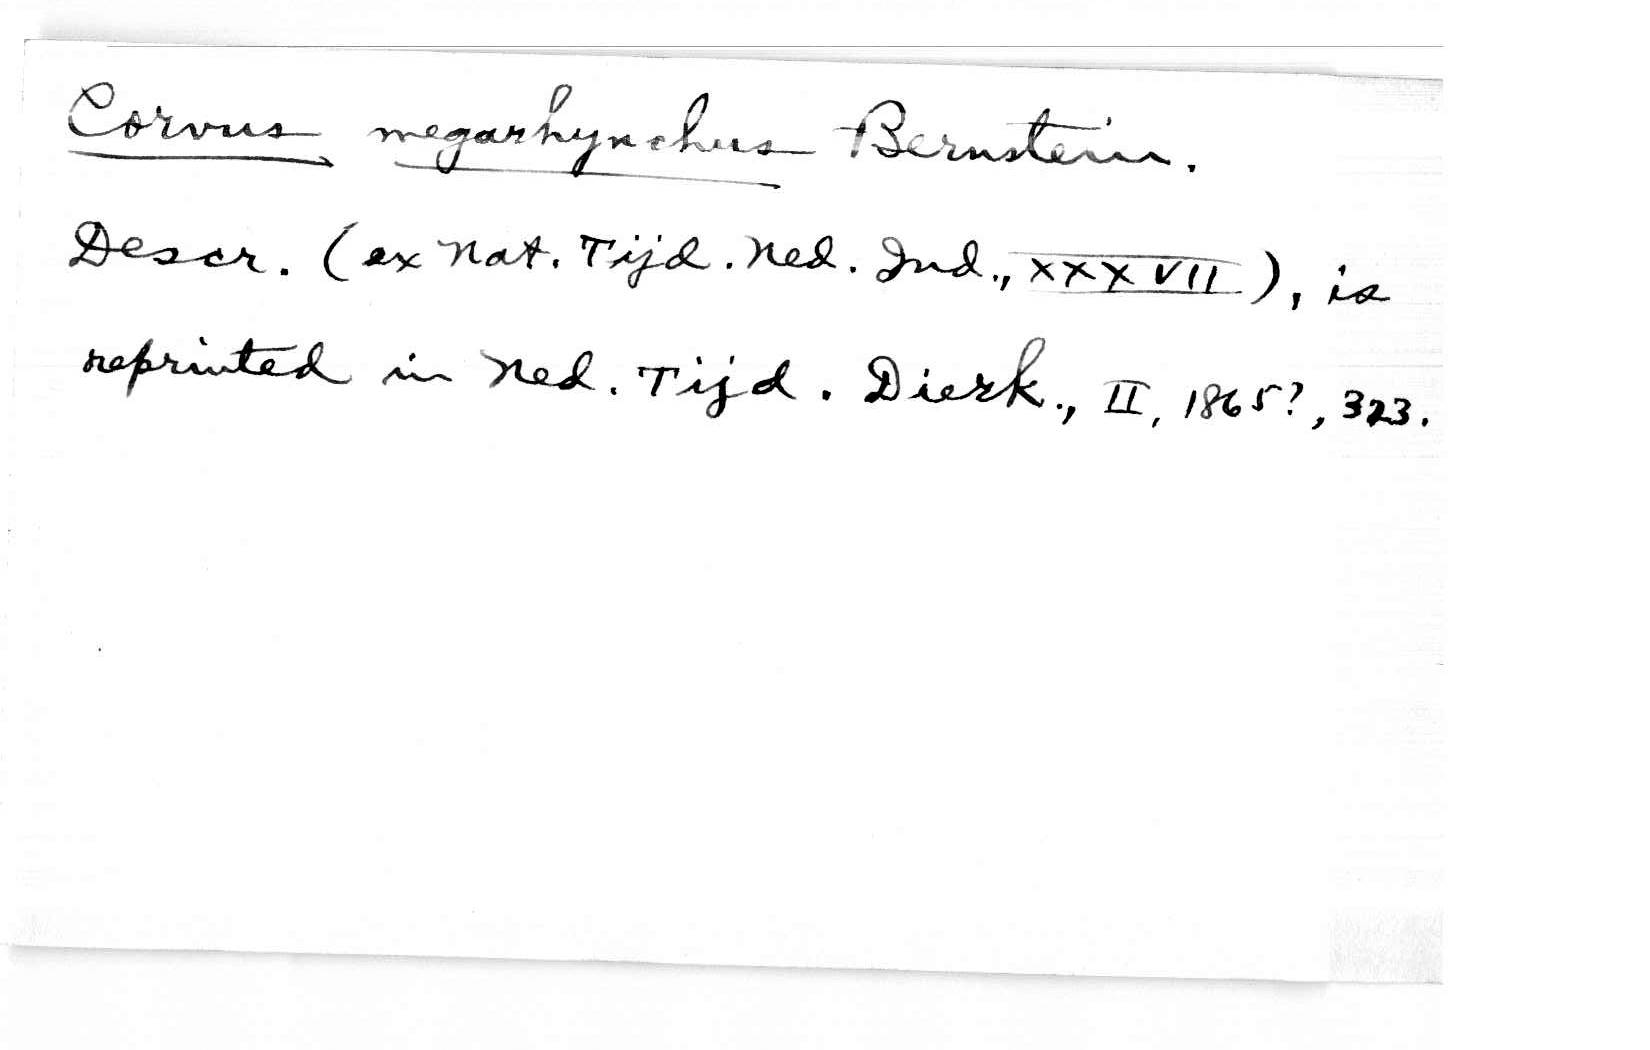 Corvus megarhynchus Bernstein.
Descr. (ex Nat. Tijd. Ned. Ind., XXXVII), is
reprinted in Ned. Tijd. Dierk., II, 1865?, 323.